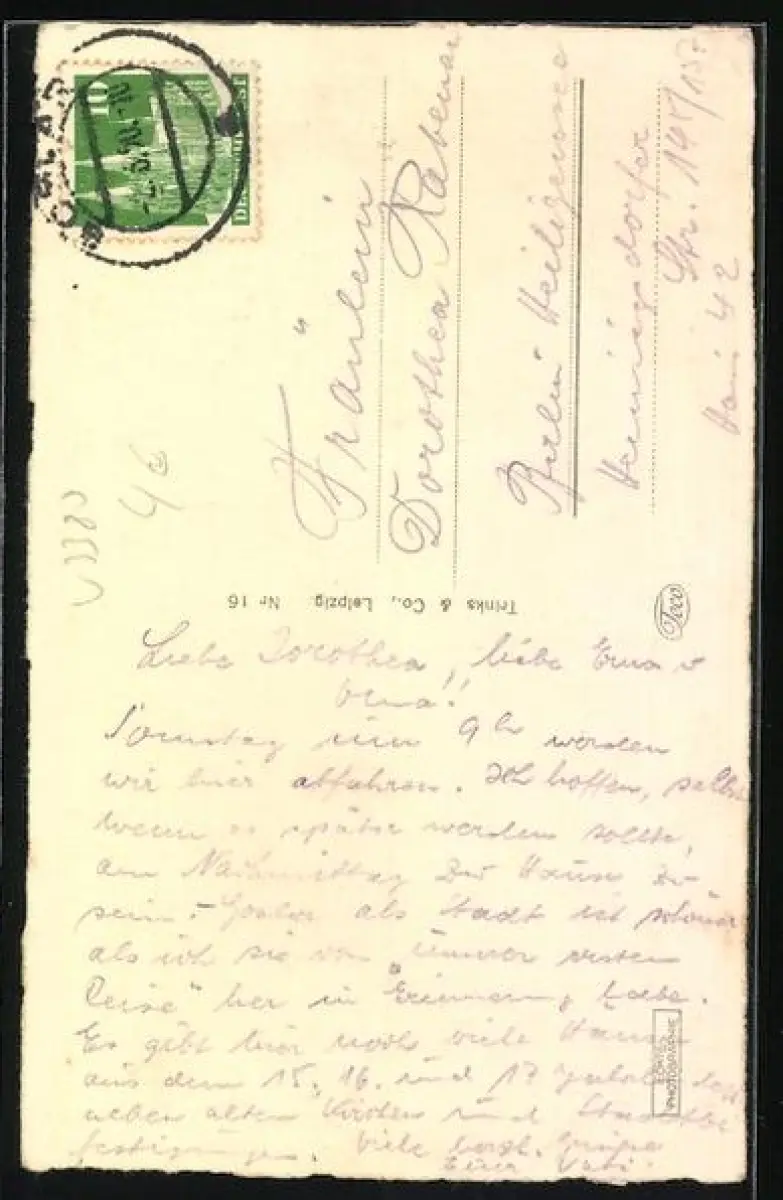 GOSLAR
10
DEUTSCHE POST
Fräulein
Dorothea Rabenau
Berlin Heiligensee
Hennigsdorfer
Str. 
42
Trinks & Co., Leipzig. Nr 16
Teco
Liebe Dorothea, liebe Erna u
Oma!!
Sonntag um 9h werden
wir hier abfahren. Ich hoffen, selbst
wenn es später werden sollte,
am Nachmittag zu Hause zu
sein. Goslar als Stadt ist schöner
als ich sie von unserer ersten
Reise" her in Erinnerung habe.
Es gibt hier noch viele Häuser
aus dem 15. 16. und 17 Jahrh.
neben alten Kirchen und Stadtbe
festigungen. Viele herzl. Grüße
Euer Vati.
ECHTES
PHOTOGRAPHIE